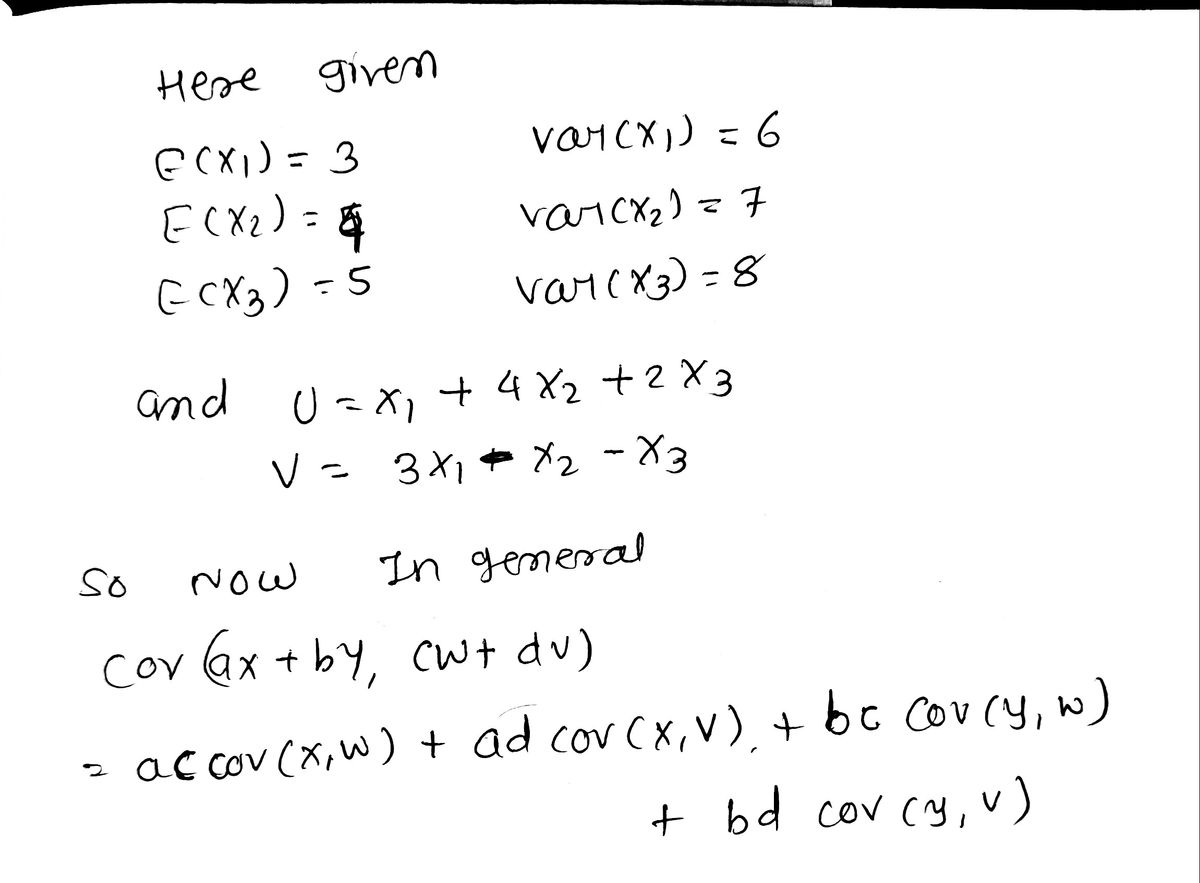 Here given
E(X₁) = 3 var(X₁) = 6
E(X₂) = 4 var(X₂) = 7
E(X₃) = 5 var(X₃) = 8
and U = X₁ + 4X₂ + 2X₃
V = 3X₁ - X₂ - X₃
So Now In general
Cov (ax + by, cw + dv)
= ac cov (x, w) + ad cov (x, v) + bc cov (y, w)
+ bd cov (y, v)